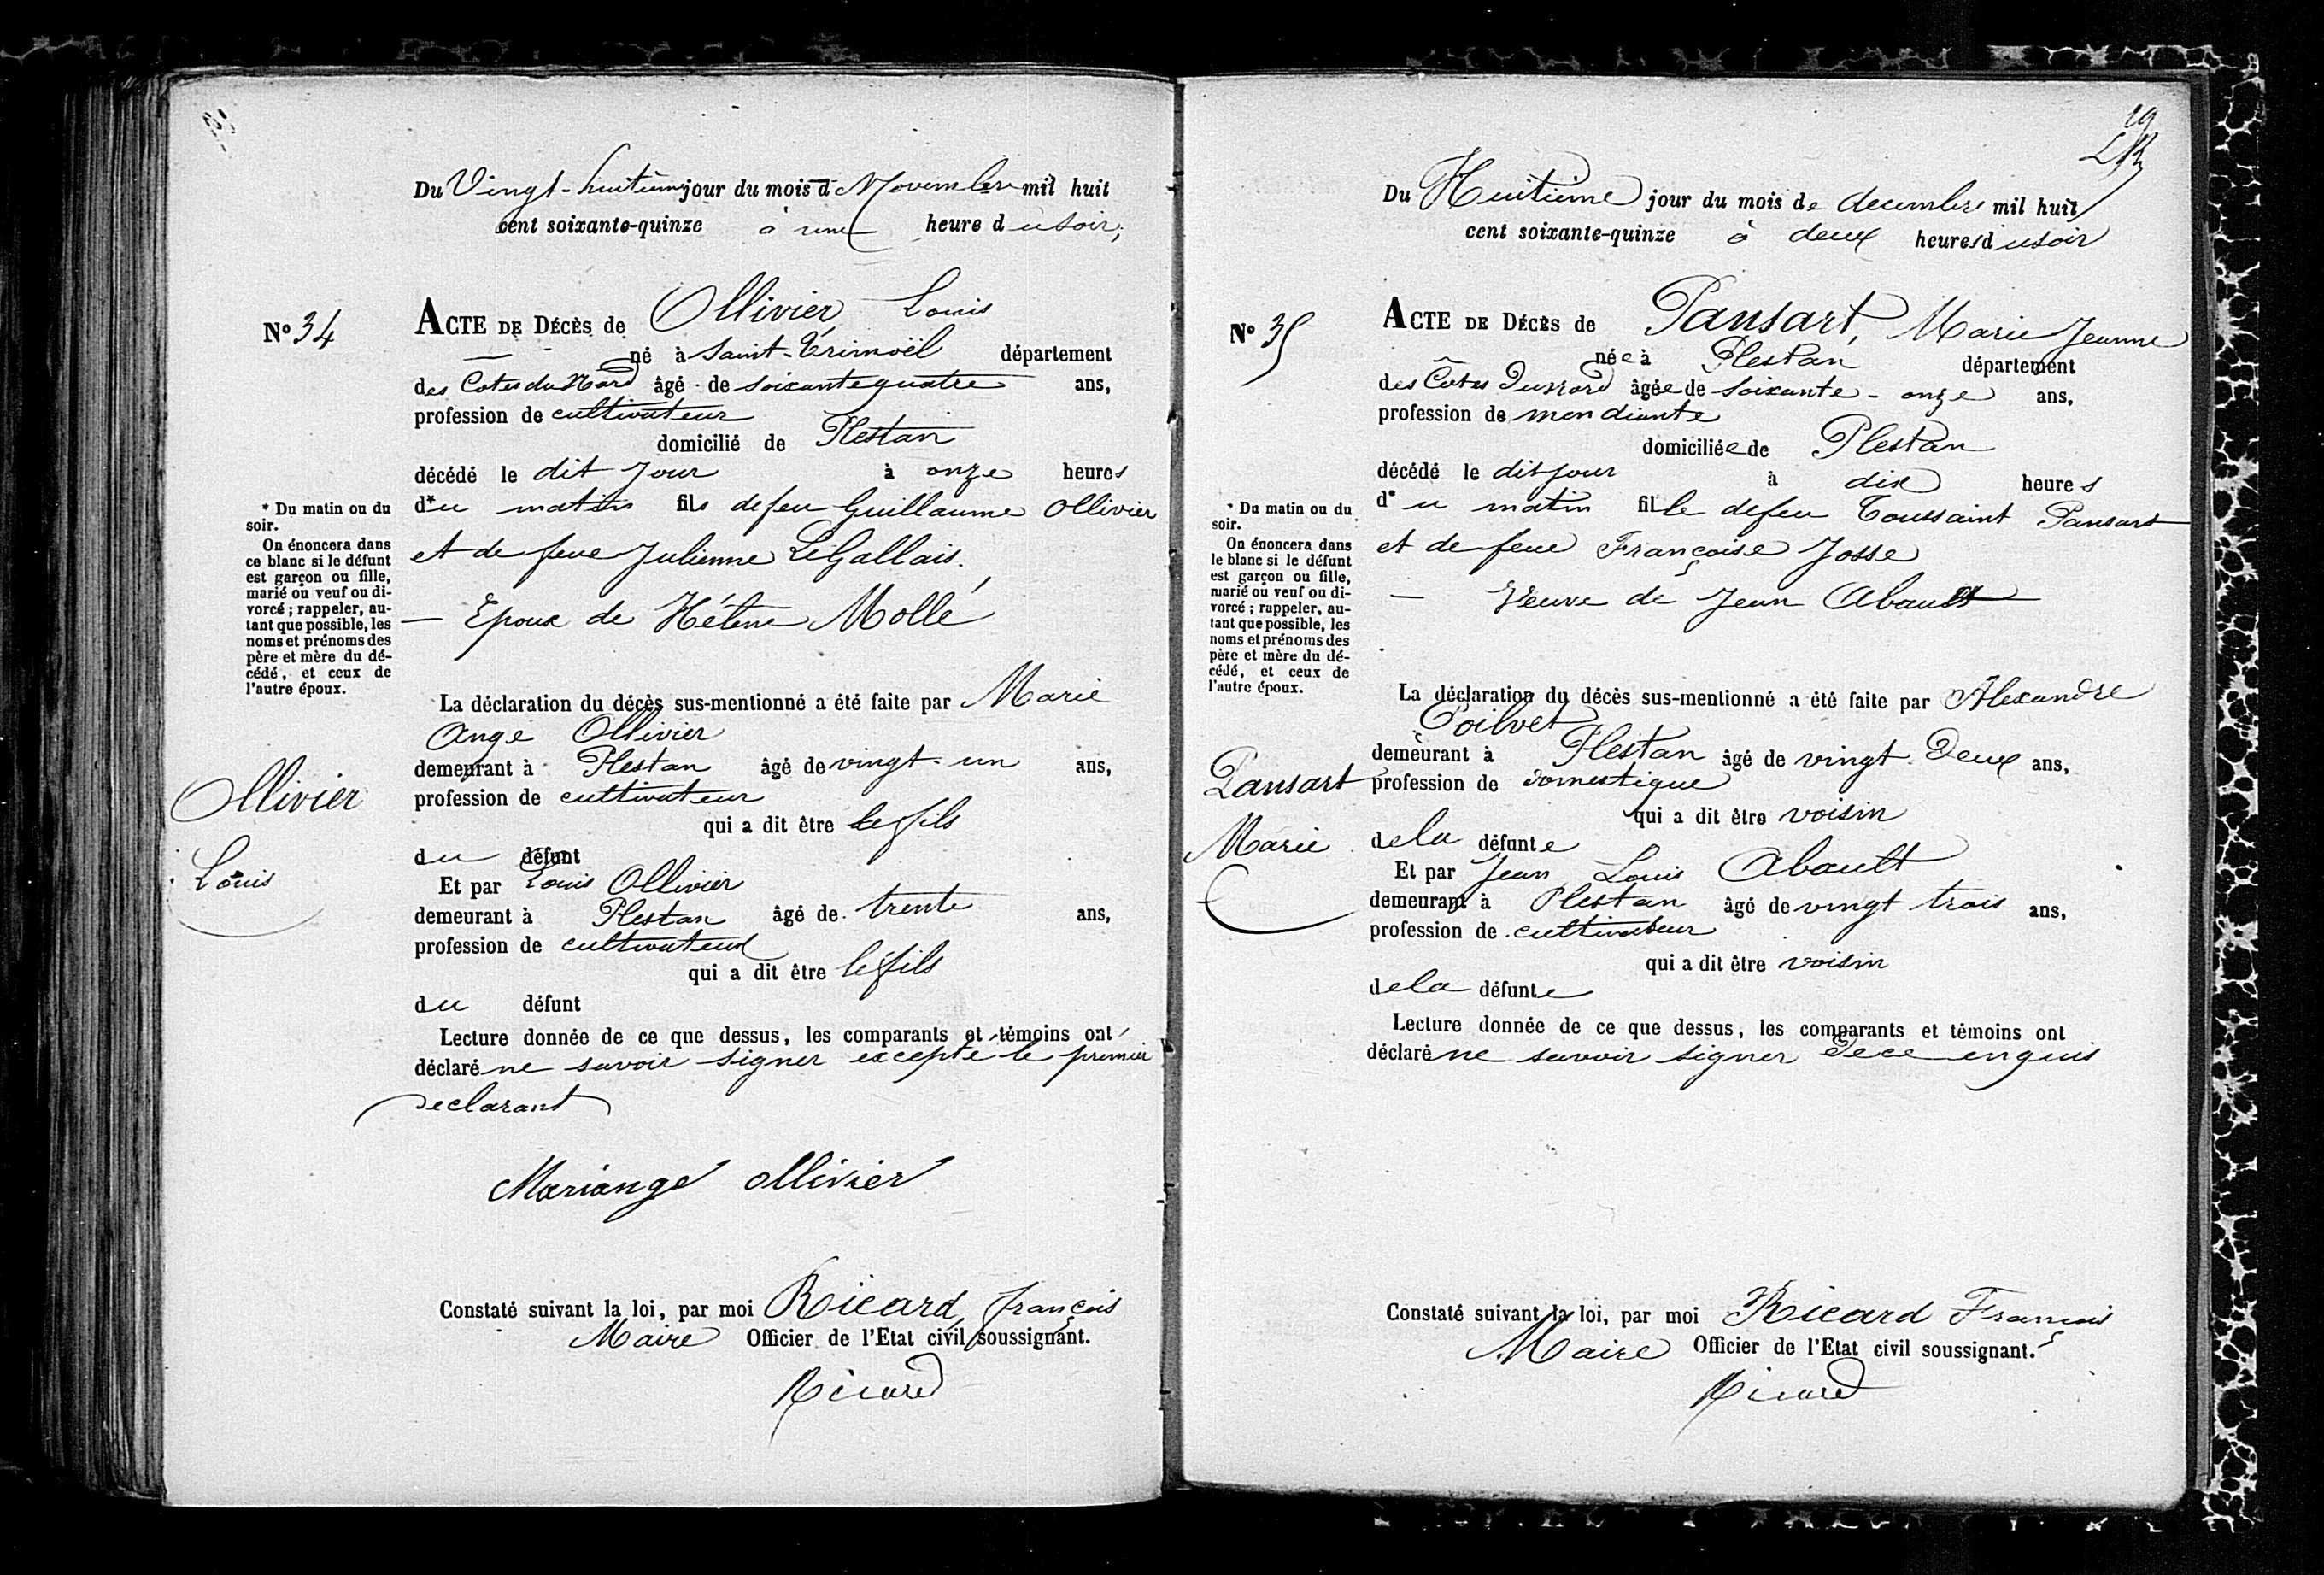 Du Vingt-huitième jour du mois d Novembre mil huit
cent soixante-quinze à une heure du soir,
N° 34
ACTE DE DÉCÈS de Ollivier Louis
né à Saint-Trimoël département
des Cotes du Nord âgé de soixante quatre ans,
profession de cultivateur
domicilié de Plestan
décédé le dit jour à onze heures
d*u matin fils de feu Guillaume Ollivier
et de feue Julienne LeGallais.
— Epoux de Hélène Mollé
* Du matin ou du
soir.
On énoncera dans
ce blanc si le défunt
est garçon ou fille,
marié ou veuf ou di-
vorcé ; rappeler, au-
tant que possible, les
noms et prénoms des
père et mère du dé-
cédé, et ceux de
l'autre époux.
La déclaration du décès sus-mentionné a été faite par Marie
Ange Ollivier
demeurant à Plestan âgé de vingt-un ans,
profession de cultivateur
qui a dit être le fils
du défunt
Et par Louis Ollivier
demeurant à Plestan âgé de trente ans,
profession de cultivateur
qui a dit être le fils
du défunt
Ollivier
Louis
Lecture donnée de ce que dessus, les comparants et témoins ont
déclaré ne savoir signer excepté le premier
declarant
Mariange ollivier
Constaté suivant la loi, par moi Ricard, françois
Maire Officier de l'Etat civil soussignant.
Ricard
19
Du Huitième jour du mois de decembre mil huit
cent soixante-quinze à deux heures du soir
N° 35
ACTE DE DÉCÈS de Pansart, Marie Jeanne
née à Plestan département
des Côtes Du nord âgée de soixante-onze ans,
profession de mendiante
domiciliée de Plestan
décédé le dit jour à dix heures
d*u matin fille de feu Toussaint Pansart
et de feue Françoise Josse
— Veuve de Jean Abault
* Du matin ou du
soir.
On énoncera dans
le blanc si le défunt
est garçon ou fille,
marié ou veuf ou di-
vorcé ; rappeler, au-
tant que possible, les
noms et prénoms des
père et mère du dé-
cédé, et ceux de
l'autre époux.
La déclaration du décès sus-mentionné a été faite par Alexandre
Poilvet
demeurant à Plestan âgé de vingt Deux ans,
profession de domestique
qui a dit être voisin
de la défunte
Et par Jean Louis Abault
demeurant à Plestan âgé de vingt trois ans,
profession de cultivateur
qui a dit être voisin
de la défunte
Pansart
Marie
Lecture donnée de ce que dessus, les comparants et témoins ont
déclaré ne savoir signer de ce enquis
Constaté suivant la loi, par moi Ricard François
Maire Officier de l'Etat civil soussignant.
Ricard